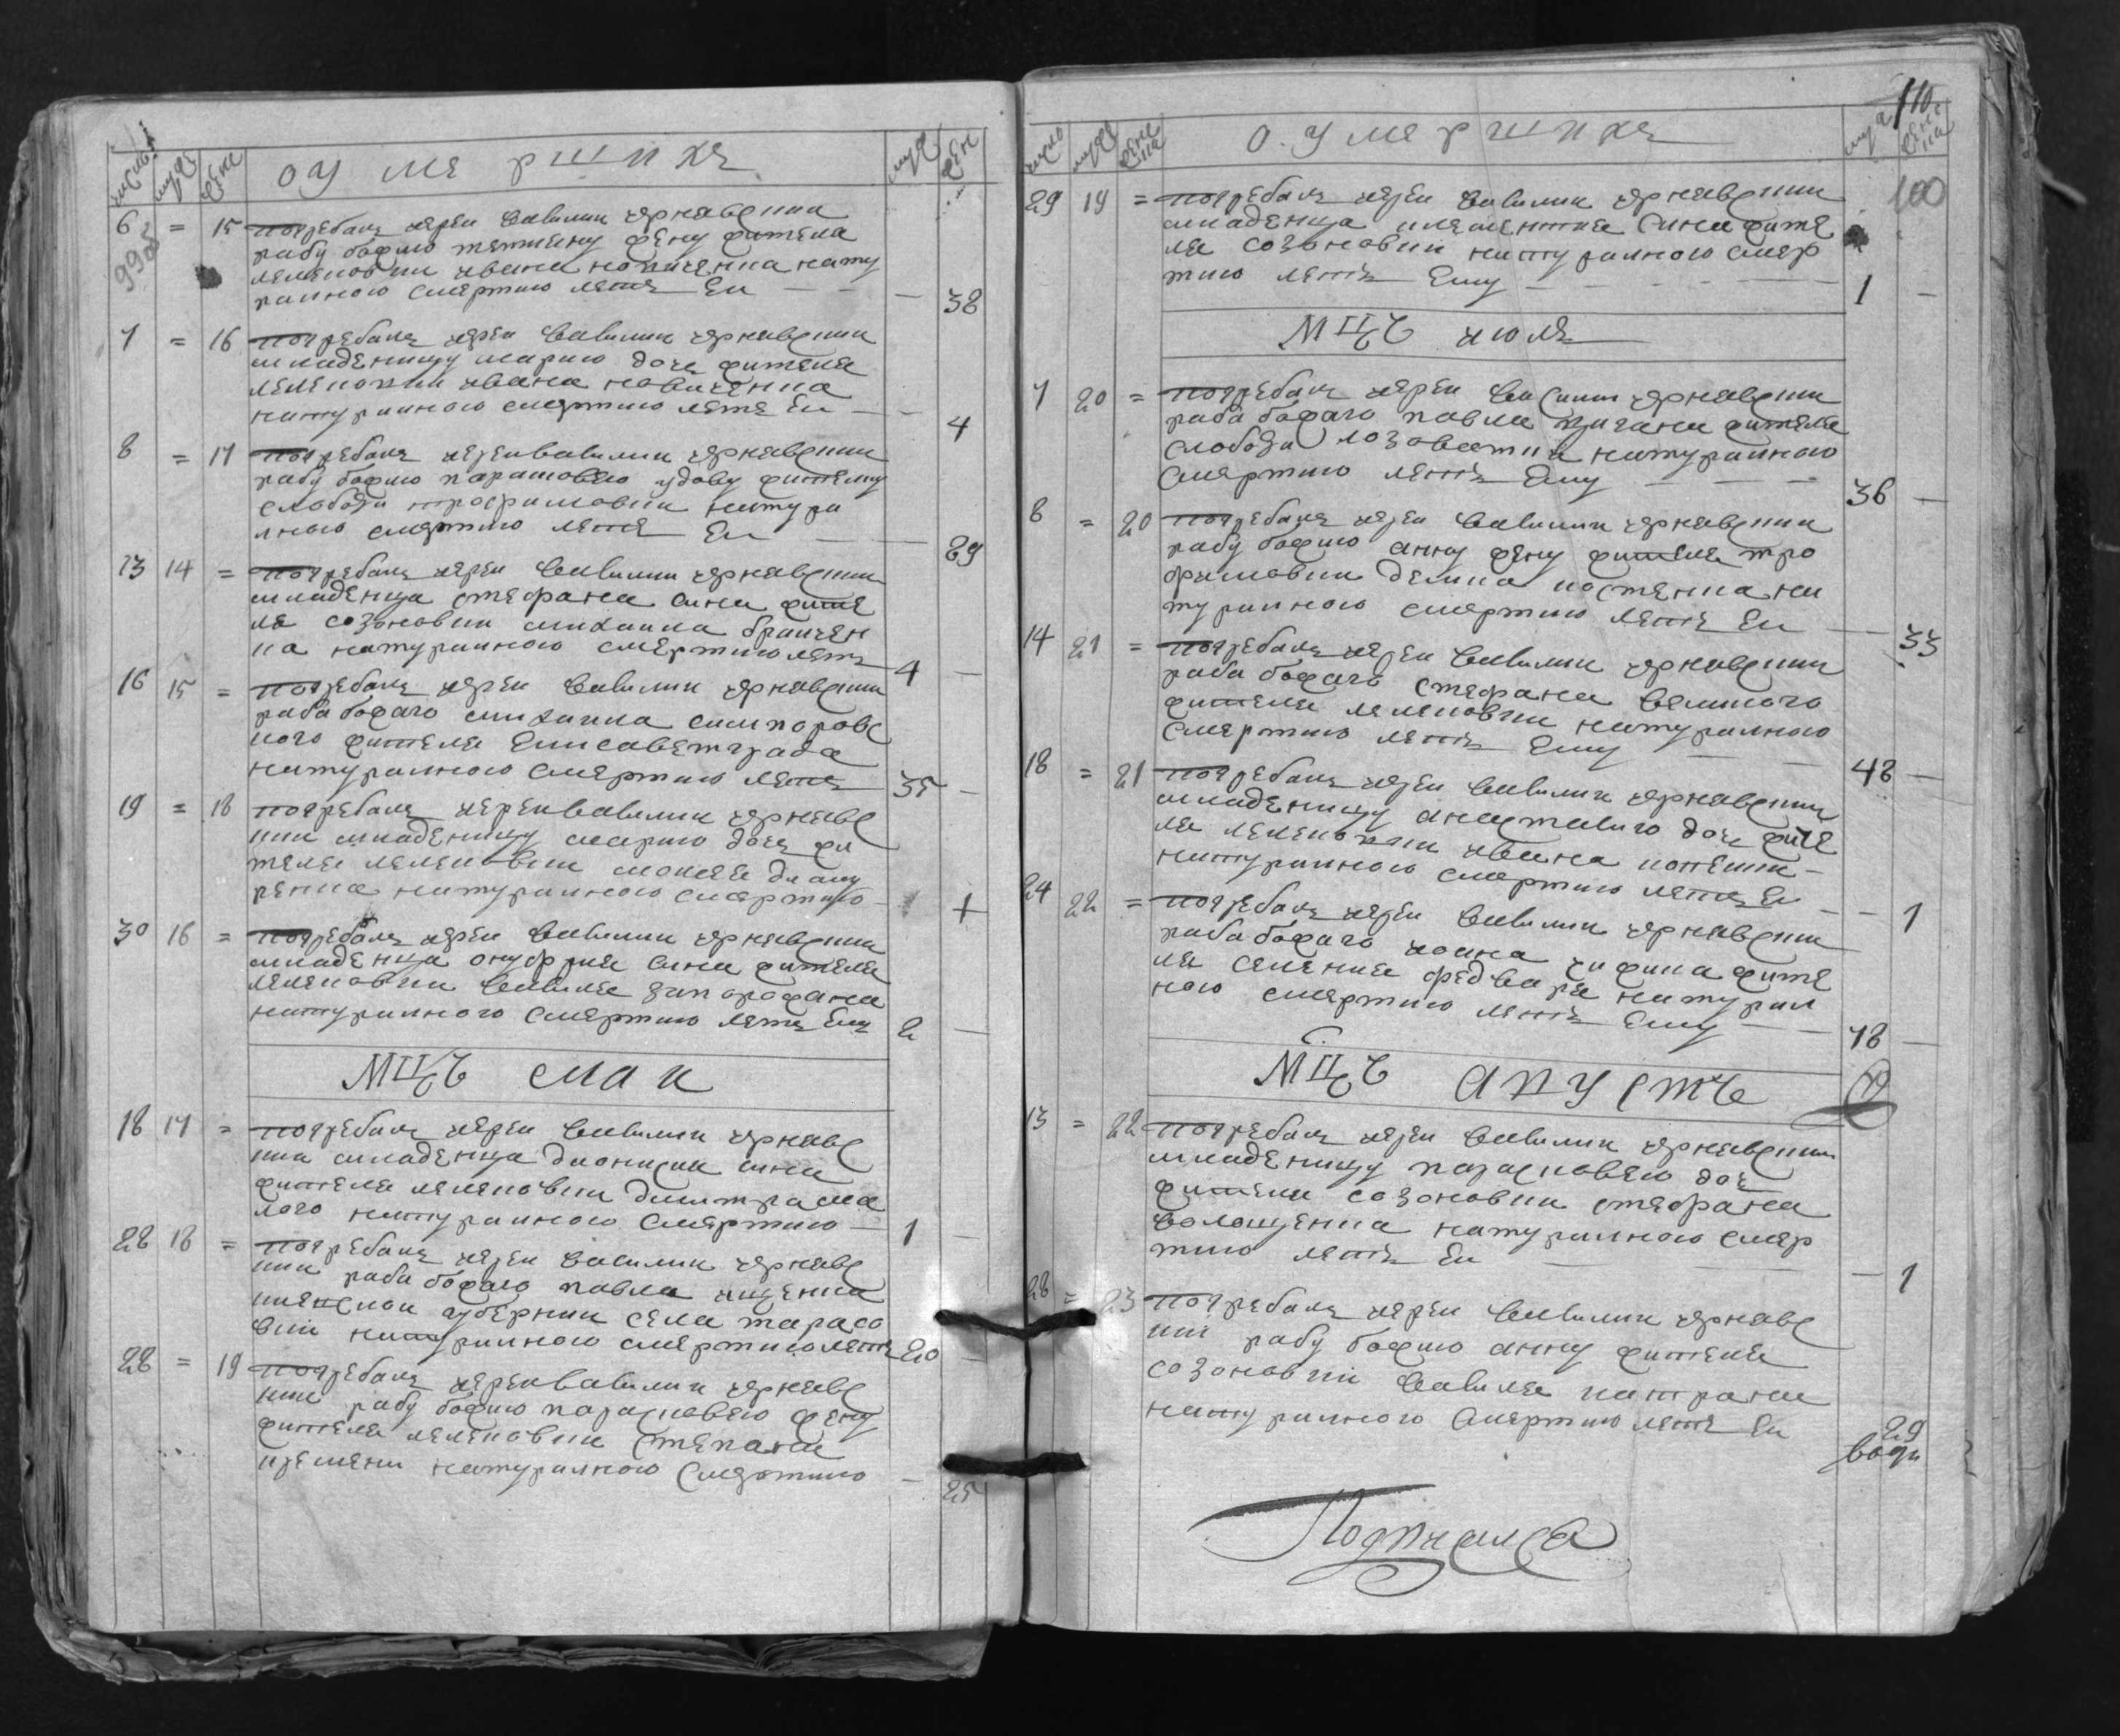 число муж жен о умершихъ муж жен
99об
6 = 15 погребалъ иереи Василии чернявски
рабу божию жену жителя
лелековки ивана нату
ралною смертию летъ Еи — 38
7 = 16 погребалъ иереи Василии чернявски
младеницу марию дочь жителя
лелековки ивана
натуралною смертию летъ Еи — 4
8 = 17 погребалъ иереи василии чернявски
рабу божию парасковею удову жителку
слободи трофимовки натура
лною смертию летъ Еи — 29
13 14 = погребалъ иереи Василии чернявски
младенца стефана сина жите
ля созоновки михаила
натуралною смертию летъ 4 —
16 15 = погребалъ иереи Василии чернявски
раба божаго михаила
жителя Елисаветграда
натуралною смертию летъ 35 —
19 = 18 погребалъ иереи василии чернявс
кии младеницу марию дочь жи
теля лелековки
натуралною смертию — 1
30 16 = погребалъ иереи Василии чернявски
младенца онуфрия сина жителя
лелековки Василя запорожана
натуралною смертию летъ Ему 2 —
МЦЪ маи
18 17 = погребалъ иереи Василии чернявс
кии младенца дионисия сина
жителя лелековки димитра ма
лого натуралною смертию — 1 —
28 18 = погребалъ иереи Василии чернявс
кии раба божаго павла ищенка
киевскои губернии села тарасо
вки натуралною смертию летъ 20 —
28 = 19 погребалъ иереи василии чернявс
кии рабу божию парасковею жену
жителя лелековки Степана
натуралною смертию — 25
110
100
число муж женска о умершихъ муж женска
29 19 = погребалъ иереи Василии чернявски
младенца климентия сина жите
ля созоновки натуралною смер
тию летъ Ему — 1 —
МЦЪ июля
7 20 = погребалъ иереи Василии чернявски
раба божаго павла жителя
слободи лозоватки натуралною
смертию летъ Ему — 36 —
8 = 20 погребалъ иереи Василии чернявски
рабу божию анну жену жителя тро
фимовки демка костенка на
туралною смертию летъ Еи — 33
14 21 = погребалъ иереи Василии чернявски
раба божаго стефана великого
жителя лелековки натуралною
смертию летъ Ему — 48 —
18 = 21 погребалъ иереи Василии чернявски
младеницу анастасию дочь жите
ля лелековки ивана
натуралною смертию летъ Еи — 1
24 22 = погребалъ иереи Василии чернявски
раба божаго иоана жите
ля селения федвара натурал
ною смертию летъ Ему — 48 —
МЦЪ Августъ
13 = 22 погребалъ иереи Василии чернявски
младеницу парасковею доч
жителя созоновки стефана
волощенка натуралною смер
тию летъ Еи — 1
28 = 23 погребалъ иереи Василии чернявс
кии рабу божию анну жителя
созоновки Василя
натуралною смертию летъ Еи 29
Подписался